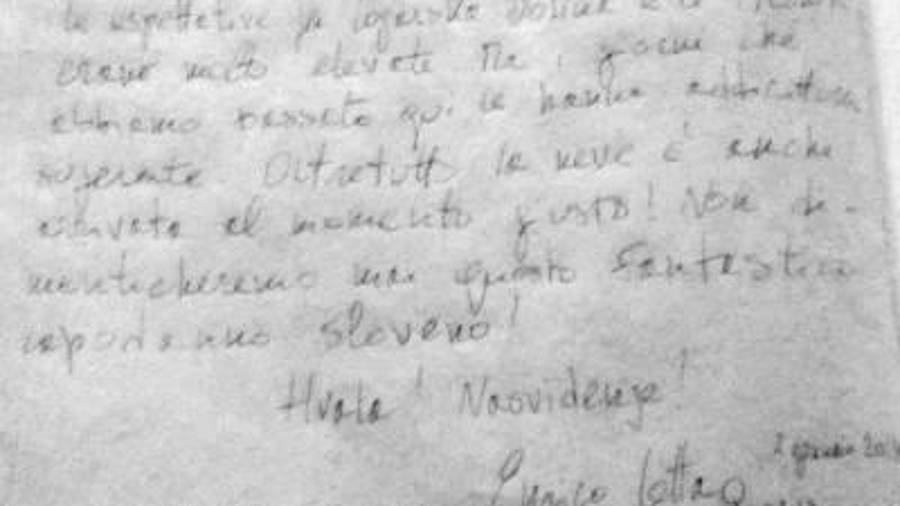 le aspettative per Logarska Dolina e la
erano molto elevate ma i giorni che
abbiamo passato qui le hanno addirittura
superate. Oltretutto la neve è anche
arrivata al momento giusto! Non di-
menticheremo mai questo fantastico
capodanno sloveno!
Hvala! Nasvidenje!
2 gennaio
Enrico